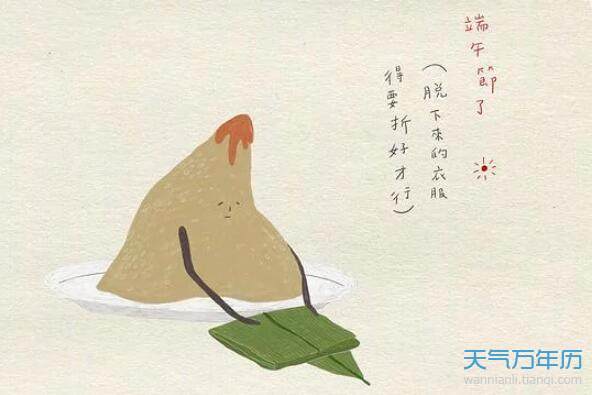 端午節了
(脫下來的衣服
得要折好才行)
天气万年历
wannianli.tianqi.com